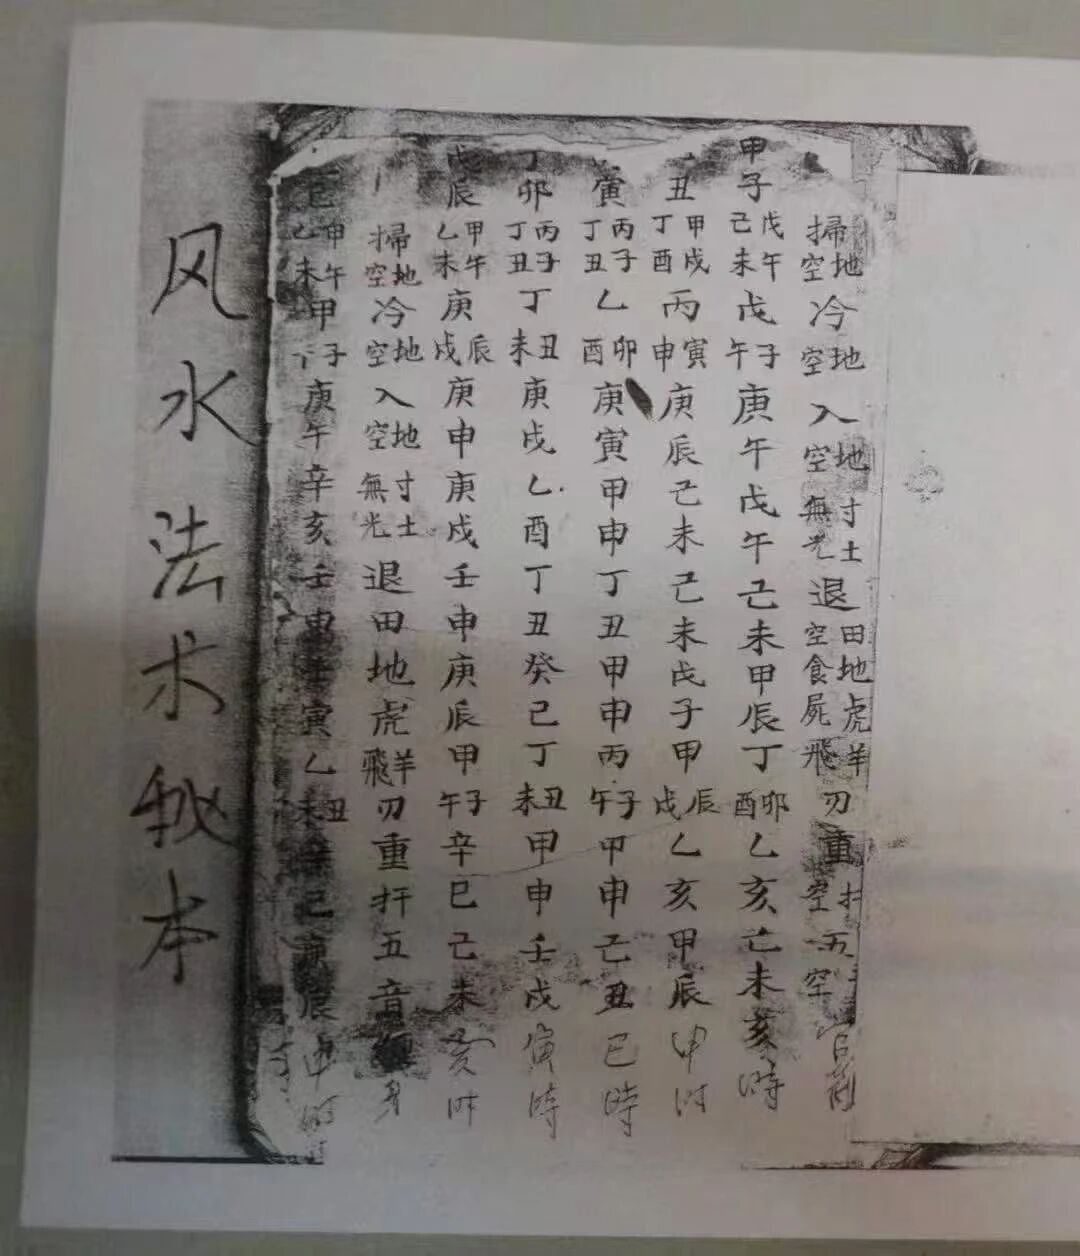 掃地空冷地空入地空寸土無光退田地空虎食屍羊飛刃重
甲子戊午己未戊子午庚午戊午己未甲辰丁卯酉乙亥己未亥時
丑甲戌丁酉丙寅申庚辰己未己未戊子甲辰戌乙亥甲辰申时
寅丙子丁丑乙卯酉庚寅甲申丁丑甲申丙子午甲申己丑巳時
丁卯丙子丁丑丁丑未庚戌乙酉丁丑癸巳丁丑未甲申壬戌寅時
戊辰甲午乙未庚辰戌庚申庚戌壬申庚辰甲子午辛巳己未亥时
掃地空冷地空入地空寸土無光退田地虎羊飛刃重扞五音
巳甲午乙未甲子午庚午辛亥壬申壬寅乙丑未辛巳庚辰申时
风水法术秘本